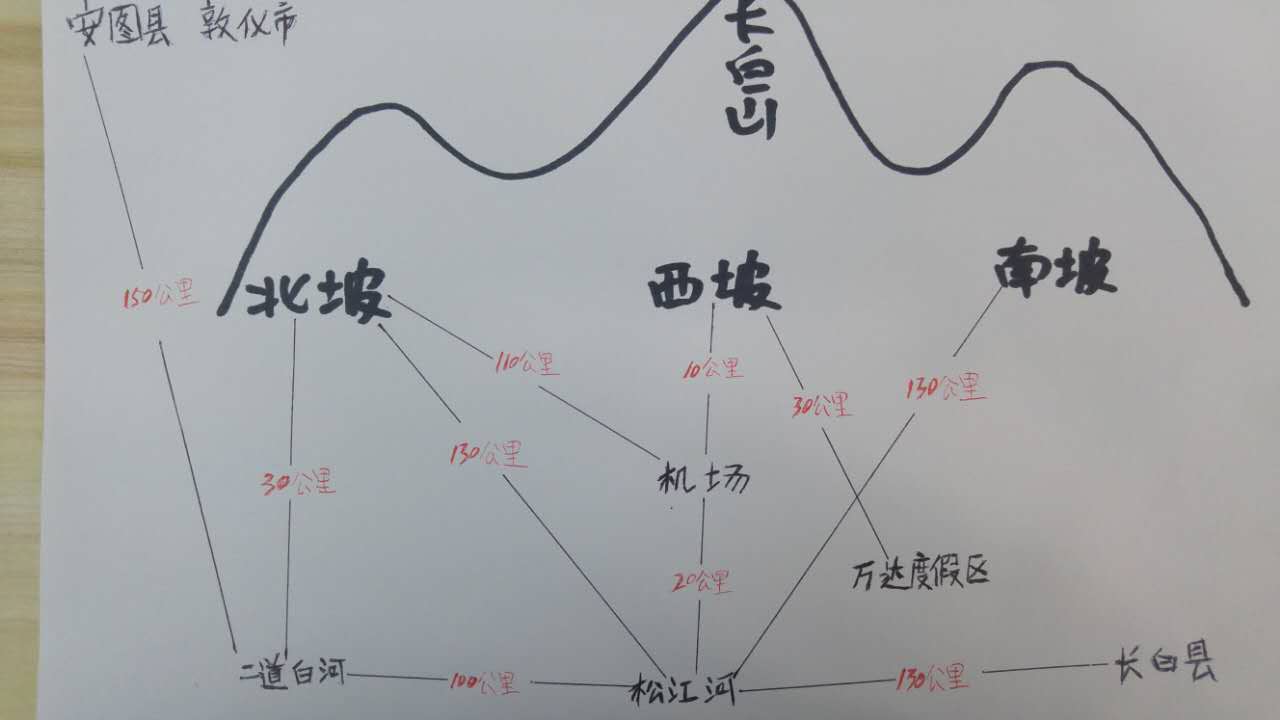 安图县 敦化市
长白山
北坡
西坡
南坡
150公里
110公里
10公里
30公里
130公里
130公里
30公里
机场
20公里
万达度假区
二道白河
100公里
松江河
130公里
长白县